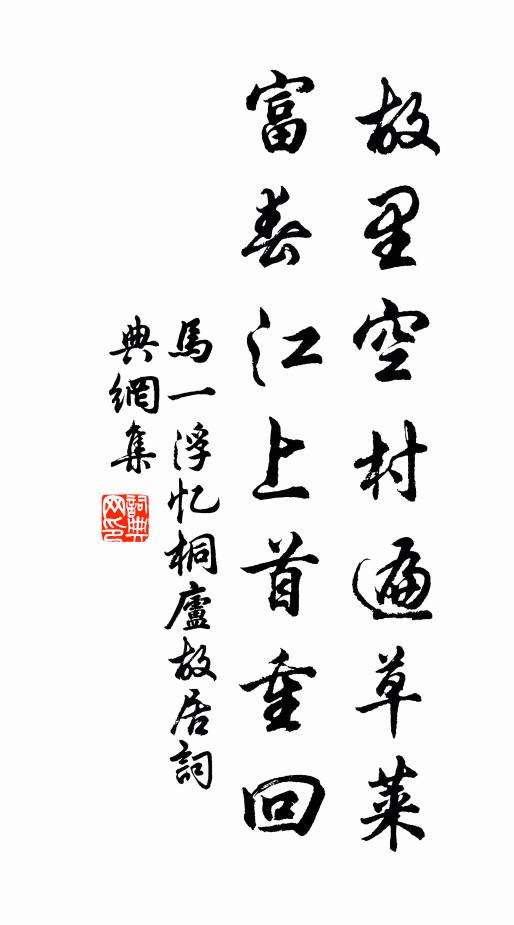 故里空村遍草莱
富春江上首重回
馬一浮忆桐廬故居詞
典網集
詞典网印